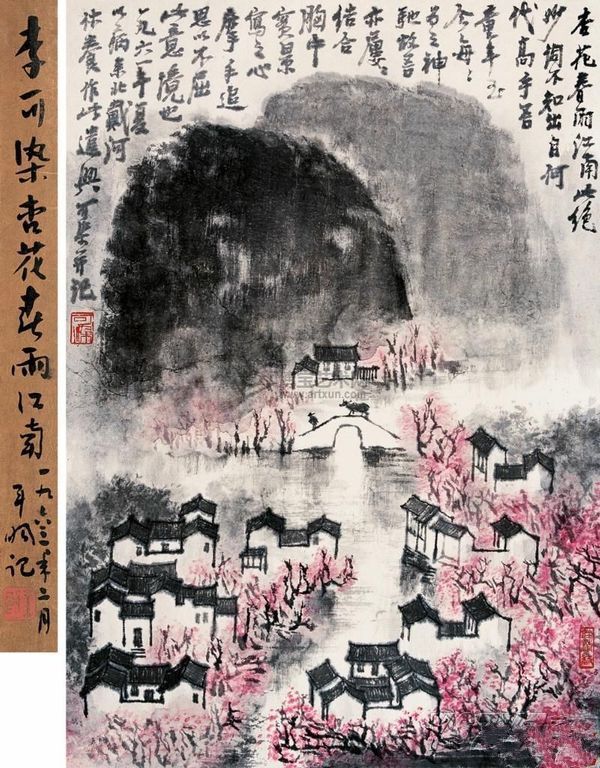 李可染杏花春雨江南
一九六三年二月
记
杏花春雨江南此绝
妙词不知出自何
代高手吾
童年至
今每每
为之神
驰故吾
亦屡屡
结合
胸中
實景
寫之心
摩手追
思以不屈
此意境也
一九六一年夏
以病来北戴河
休養作此遣興可染并记
www.artxun.com